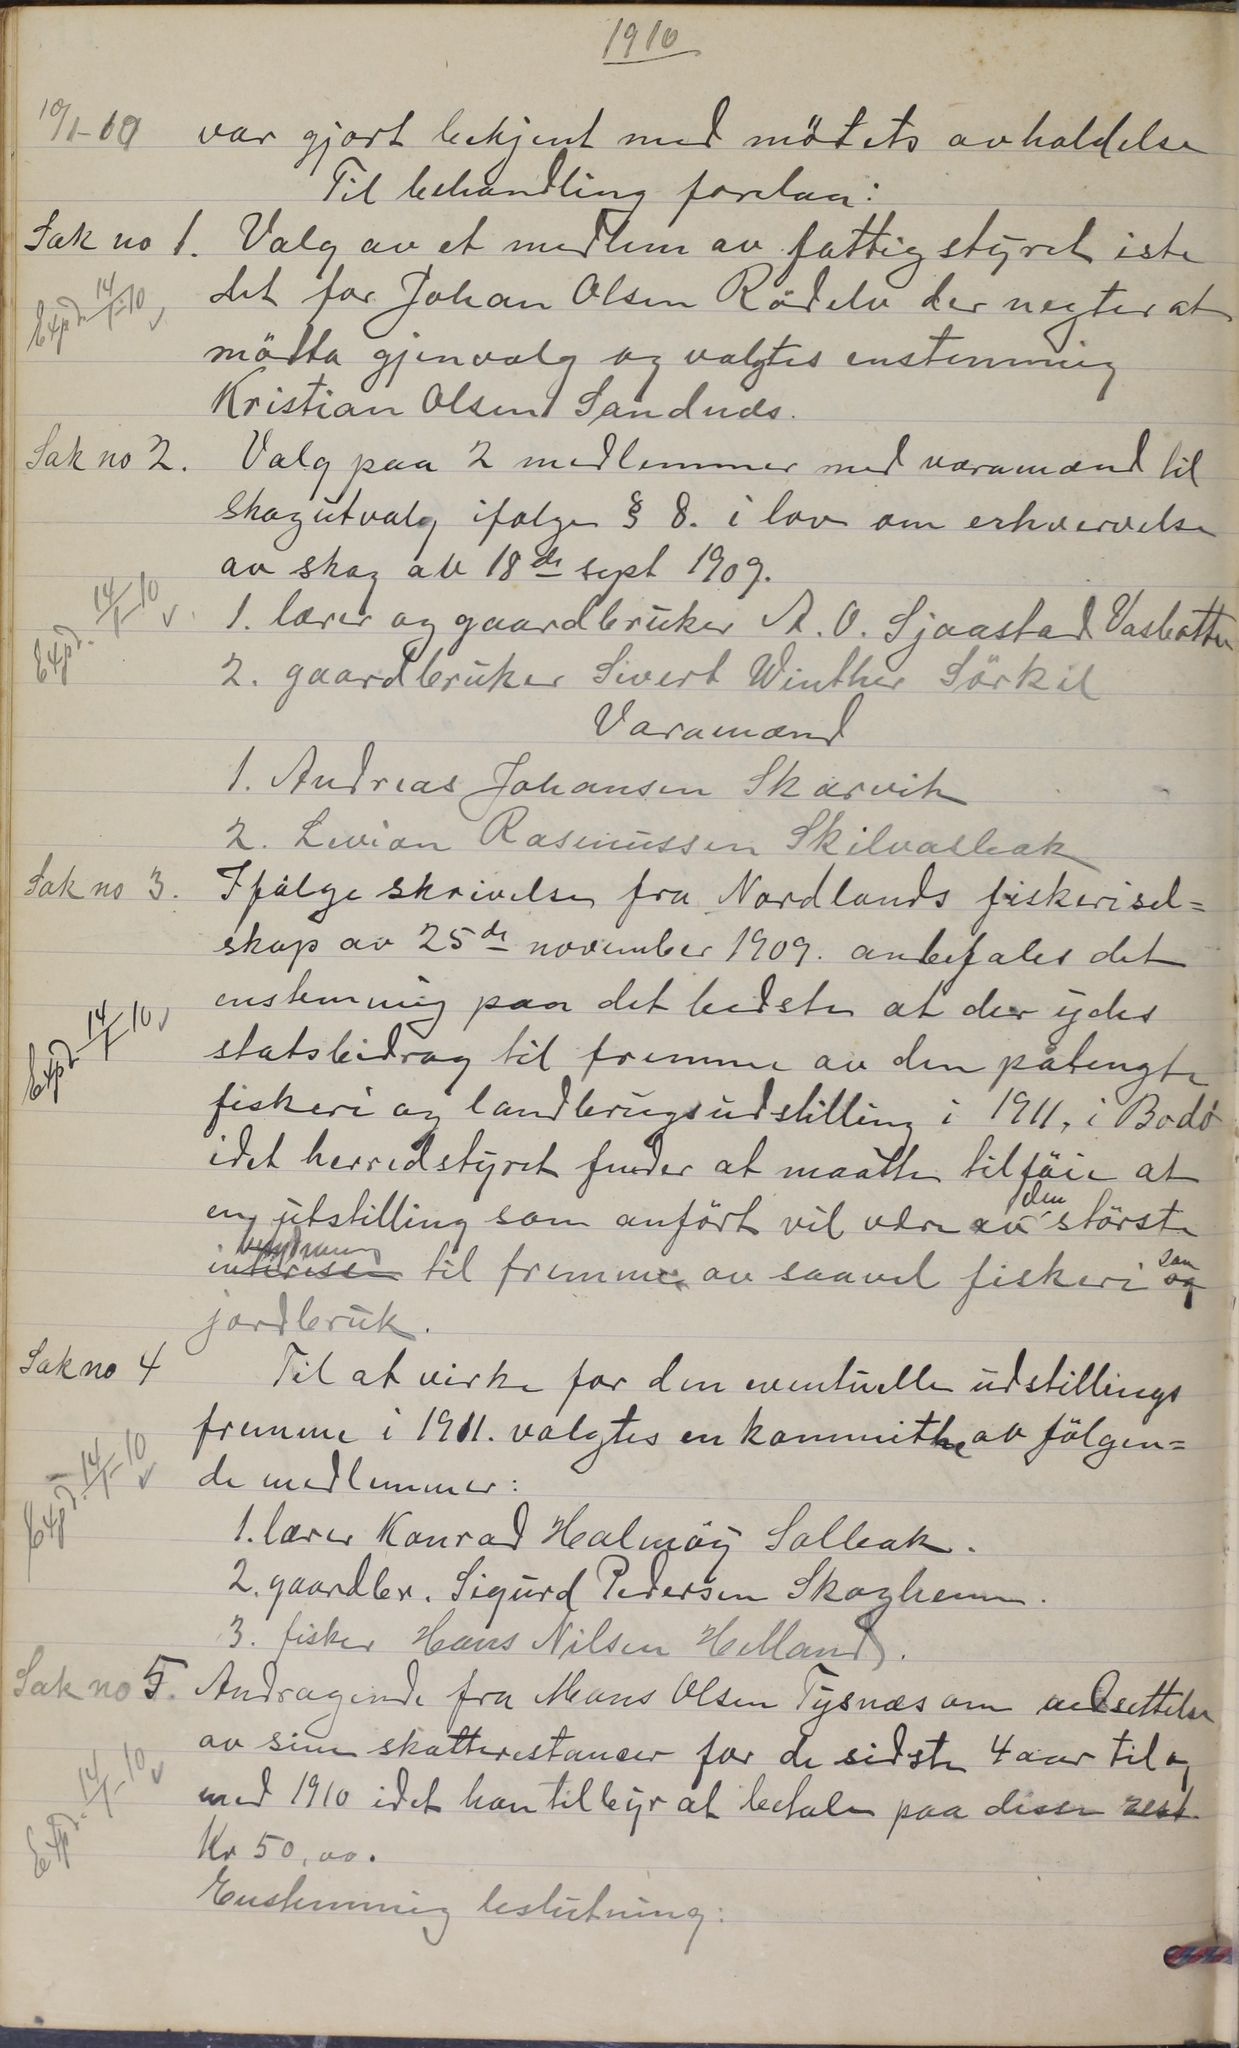 1910
10/1-10 var gjort bekjent med mötets avholdelse
Til behandling forelaa:
Sak no 1. Valg av et medlem av fattigstyret iste
det for Johan Olsen Rödelv der negter at
Expd. 14/1-10 v
mötta gjenvalg og valgtes enstemmig
Kristian Olsen Sandnæs.
Sak no 2. Valg paa 2 medlemmer med varamænd til
skogutvalg ifølge § 8. i lov om erhvervelse
av skog av 18de sept 1909.
Expd. 14/1-10 v
1. lærer og gaardbruker A. O. Sjaastad Vasbotten
2. gaardbruker Sivert Winther Sörkil
Varamænd
1. Andreas Johansen Skarvik
2. Levion Rasmussen Skilvasbak
Sak no 3. Ifölge skrivelse fra Nordlands fiskerisel=
skap av 25de november 1909. anbefales det
enstemmig paa det bedste at der ydes
Expd. 14/1-10 v
statsbidrag til fremme av den påtengte
fiskeri og landbrugsudstilling i 1911, i Bodö
idet herredstyret finder at maatte tilföie at
en utstilling som anfört vil være av den störste
interesse betydning til fremme av saavel fiskeri og som
jordbruk.
Sak no 4 Til at virke for den eventuelle udstillings
fremme i 1911. valgtes en kommithe av fölgen=
Expd. 14/1-10 v
de medlemmer:
1. lærer Konrad Halmöy Solbak.
2. gaardbr. Sigurd Pedersen Skogheim.
3. fisker Hans Nilsen Helland.
Sak no 5. Andragende fra Mons Olsen Tysnæs om nedsettelse
av sine skatterestancer for de sidste 4 aar til og
Expd. 14/1-10 v
med 1910 idet han tilbyr at betale paa disse rest
Kr 50,00.
Enstemmig beslutning: